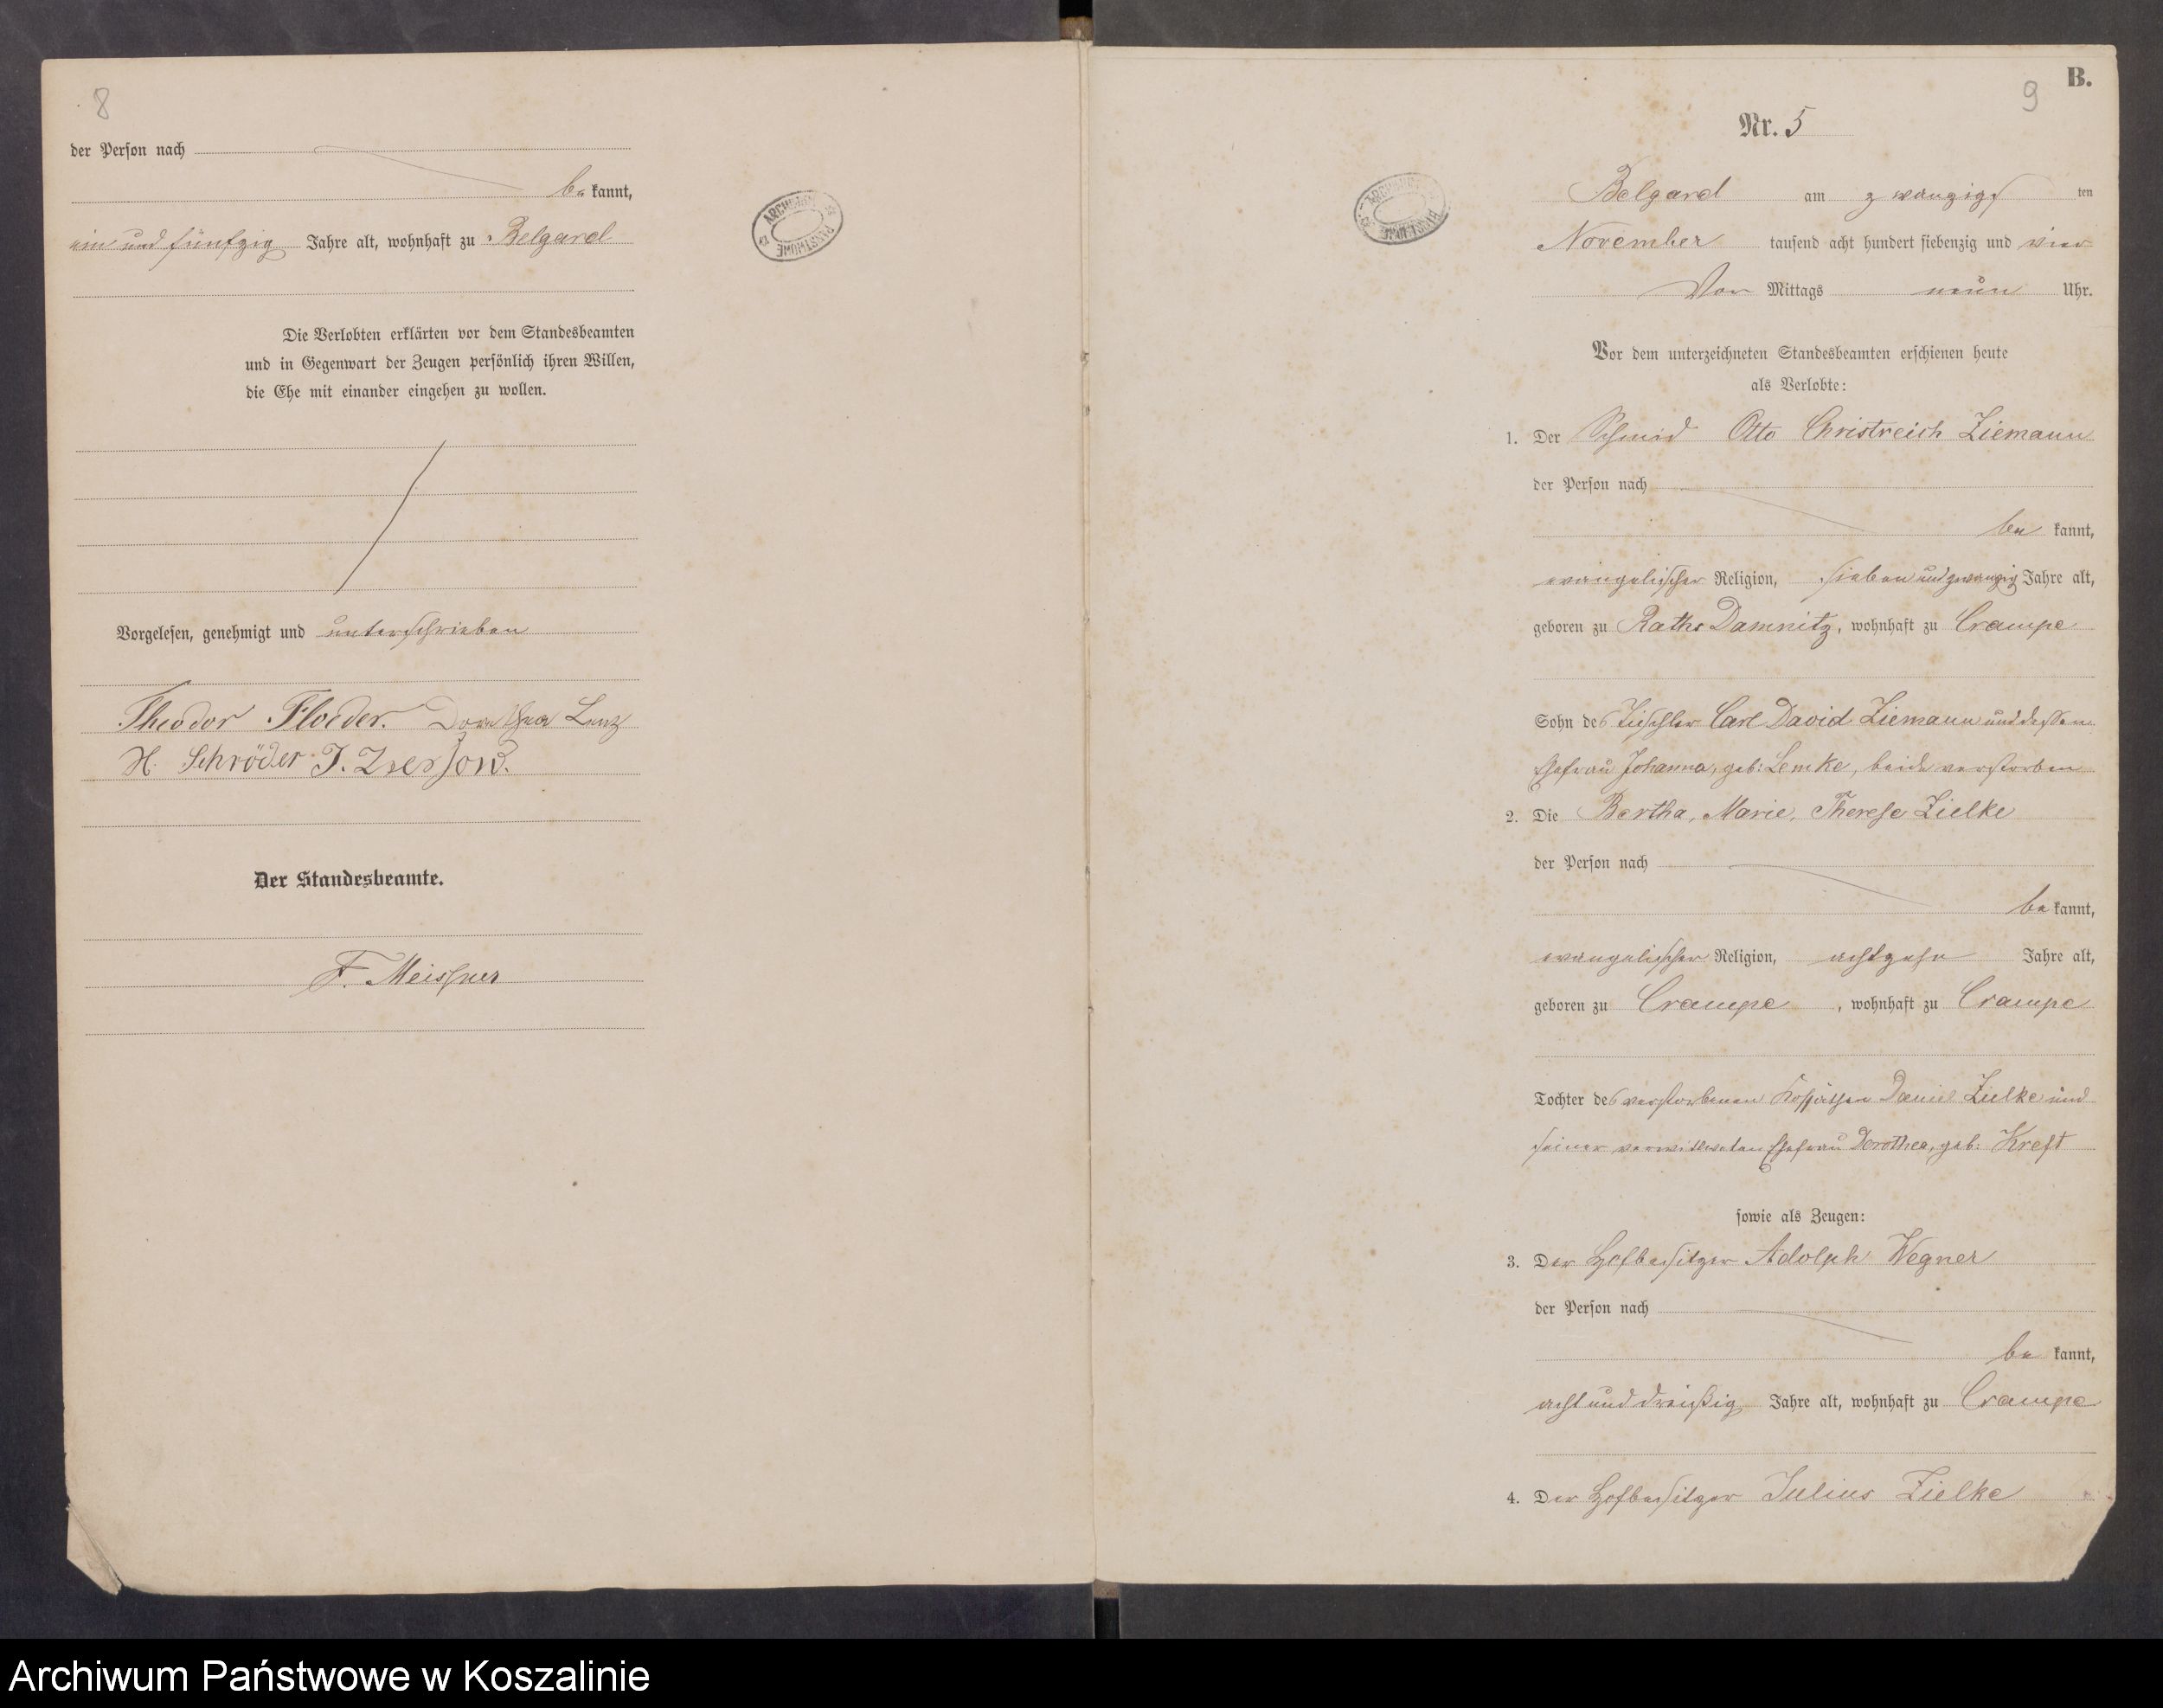 8
der Person nach
bekannt,
ein und fünfzig Jahre alt, wohnhaft zu Belgard
Die Verlobten erklärten vor dem Standesbeamten
und in Gegenwart der Zeugen persönlich ihren Willen,
die Ehe mit einander eingehen zu wollen.
Vorgelesen, genehmigt und unterschrieben
Theodor Floeder. Dorothea Lenz
H. Schröder
Der Standesbeamte.
F. Meissner
B.
9
Nr. 5
Belgard am zwanzigsten
November tausend acht hundert siebenzig und vier
Vor Mittags neun Uhr.
Vor dem unterzeichneten Standesbeamten erschienen heute
als Verlobte:
1. Der Schmid Otto Christreich Ziemann
der Person nach
bekannt,
evangelischer Religion, sieben und zwanzig Jahre alt,
geboren zu Raths Damnitz, wohnhaft zu Crampe
Sohn des Tischler Carl David Ziemann und dessen
Ehefrau Johanna, geb: Lemke, beide verstorben
2. Die Bertha, Marie, Therese Zielke
der Person nach
bekannt,
evangelischer Religion, achtzehn Jahre alt,
geboren zu Crampe, wohnhaft zu Crampe
Tochter des verstorbenen Kossäthen Daniel Zielke und
seiner verwittweten Ehefrau Dorothea, geb: Kreft
sowie als Zeugen:
3. Der Hofbesitzer Adolph Wegner
der Person nach
bekannt,
acht und dreißig Jahre alt, wohnhaft zu Crampe
4. Der Hofbesitzer Julius Zielke
Archiwum Państwowe w Koszalinie